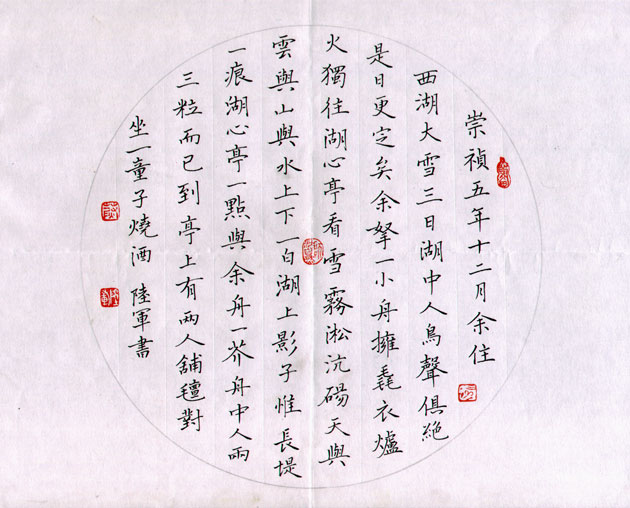 崇禎五年十二月余住
西湖大雪三日湖中人鳥聲俱絶
是日更定矣余拏一小舟擁毳衣爐
火獨往湖心亭看雪霧淞沆碭天與
雲與山與水上下一白湖上影子惟長堤
一痕湖心亭一點與余舟一芥舟中人兩
三粒而已到亭上有兩人舖氊對
坐一童子燒酒 陸軍書